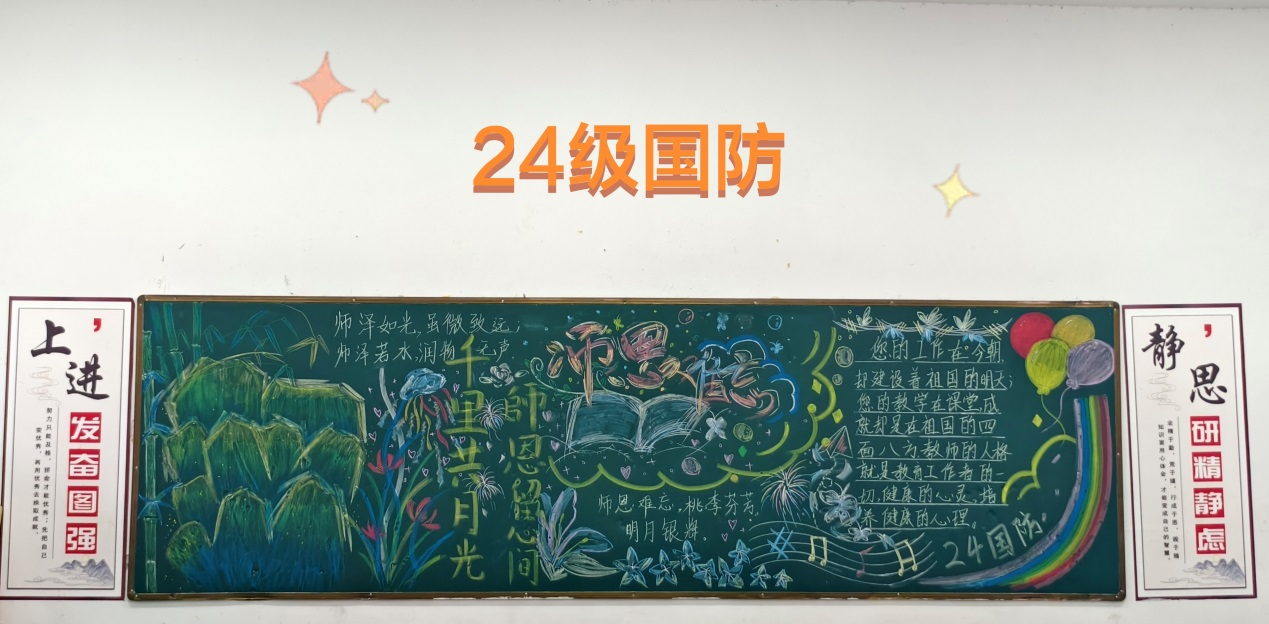 24级国防
上进
发奋图强
努力只能及格，拼命才能优秀；先把自己
变优秀，再用优秀去换取成就。
师泽如光,虽微致远;
师泽若水,润物 无声
千里共月光
師恩留心间
师恩难忘
师恩难忘,桃李芬芳,
明月银辉.
您的工作在今朝,
却建设着祖国的明天;
您的教学在课堂成
就却是在祖国的四
面八方教师的人格
就是教育工作者的一
切,健康的心灵,培
养健康的心理。
24国防
静思
研精静虑
业精于勤，荒于嬉，行成于思，毁于随
知识要用心体会，才能变成自己的智慧。